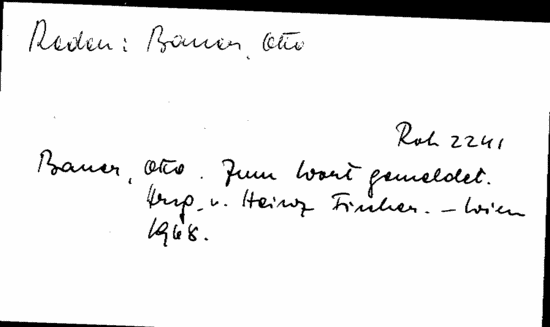 Reden: Bauer, Otto
Roh 2241
Bauer, Otto. Zum Wort gemeldet.
Hrsg. v. Heinz Fischer. – Wien
1968.